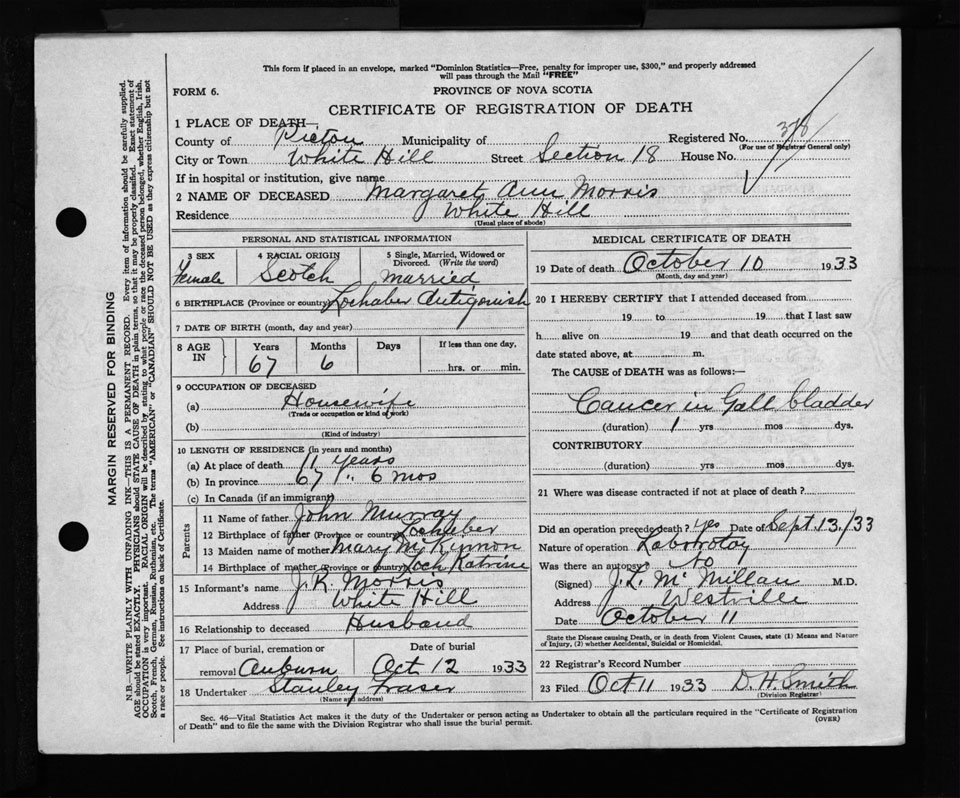 This form if placed in an envelope, marked "Dominion Statistics—Free, penalty for improper use, $300," and properly addressed
will pass through the Mail "FREE"
FORM 6.
PROVINCE OF NOVA SCOTIA
CERTIFICATE OF REGISTRATION OF DEATH
1 PLACE OF DEATH—
County of Pictou Municipality of Registered No. 378
(For use of Registrar General only)
City or Town White Hill Street Section 18 House No.
If in hospital or institution, give name
2 NAME OF DECEASED Margaret Ann Morris
Residence White Hill
(Usual place of abode)
PERSONAL AND STATISTICAL INFORMATION
3 SEX Female
4 RACIAL ORIGIN Scotch
5 Single, Married, Widowed or Divorced. (Write the word) married
6 BIRTHPLACE (Province or country) Lochaber Antigonish
7 DATE OF BIRTH (month, day and year)
8 AGE IN Years 67 Months 6 Days If less than one day, hrs. or min.
9 OCCUPATION OF DECEASED
(a) Housewife
(Trade or occupation or kind of work)
(b)
(Kind of industry)
10 LENGTH OF RESIDENCE (in years and months)
(a) At place of death 11 years
(b) In province 67 " 6 mos
(c) In Canada (if an immigrant)
Parents
11 Name of father John Murray
12 Birthplace of father (Province or country) Lochaber
13 Maiden name of mother Mary McKinnon
14 Birthplace of mother (Province or country) Loch Katrine
15 Informant's name J. K. Morris
Address White Hill
16 Relationship to deceased Husband
17 Place of burial, cremation or removal Auburn
Date of burial Oct 12 1933
18 Undertaker Stanley Fraser
(Name and address)
MEDICAL CERTIFICATE OF DEATH
19 Date of death October 10 1933
(Month, day and year)
20 I HEREBY CERTIFY that I attended deceased from
19 to 19 that I last saw
h alive on 19 and that death occurred on the
date stated above, at m.
The CAUSE of DEATH was as follows:—
Cancer in Gall bladder
(duration) 1 yrs mos dys.
CONTRIBUTORY
(duration) yrs. mos. dys.
21 Where was disease contracted if not at place of death?
Did an operation precede death? yes Date of Sept. 13/33
Nature of operation Labstrotoy
Was there an autopsy? No
(Signed) J. L. McMillan M.D.
Address Westville
Date October 11
State the Disease causing Death, or in death from Violent Causes, state (1) Means and Nature
of Injury, (2) whether Accidental, Suicidal or Homicidal.
22 Registrar's Record Number
23 Filed Oct 11 1933 D. H. Smith
(Division Registrar)
Sec. 46—Vital Statistics Act makes it the duty of the Undertaker or person acting as Undertaker to obtain all the particulars required in the "Certificate of Registration
of Death" and to file the same with the Division Registrar who shall issue the burial permit.
(OVER)
MARGIN RESERVED FOR BINDING
N.B.—WRITE PLAINLY WITH UNFADING INK—THIS IS A PERMANENT RECORD. Every item of information should be carefully supplied.
AGE should be stated EXACTLY. PHYSICIANS should STATE CAUSE OF DEATH in plain terms, so that it may be properly classified. Exact statement of
OCCUPATION is very important. RACIAL ORIGIN will be described by stating to what people or race the deceased person belonged, whether English, Irish,
Scotch, French, German, Russian, Ruthenian, etc. The terms "AMERICAN" or "CANADIAN" SHOULD NOT BE USED as they express citizenship but not
a race or people. See instructions on back of Certificate.